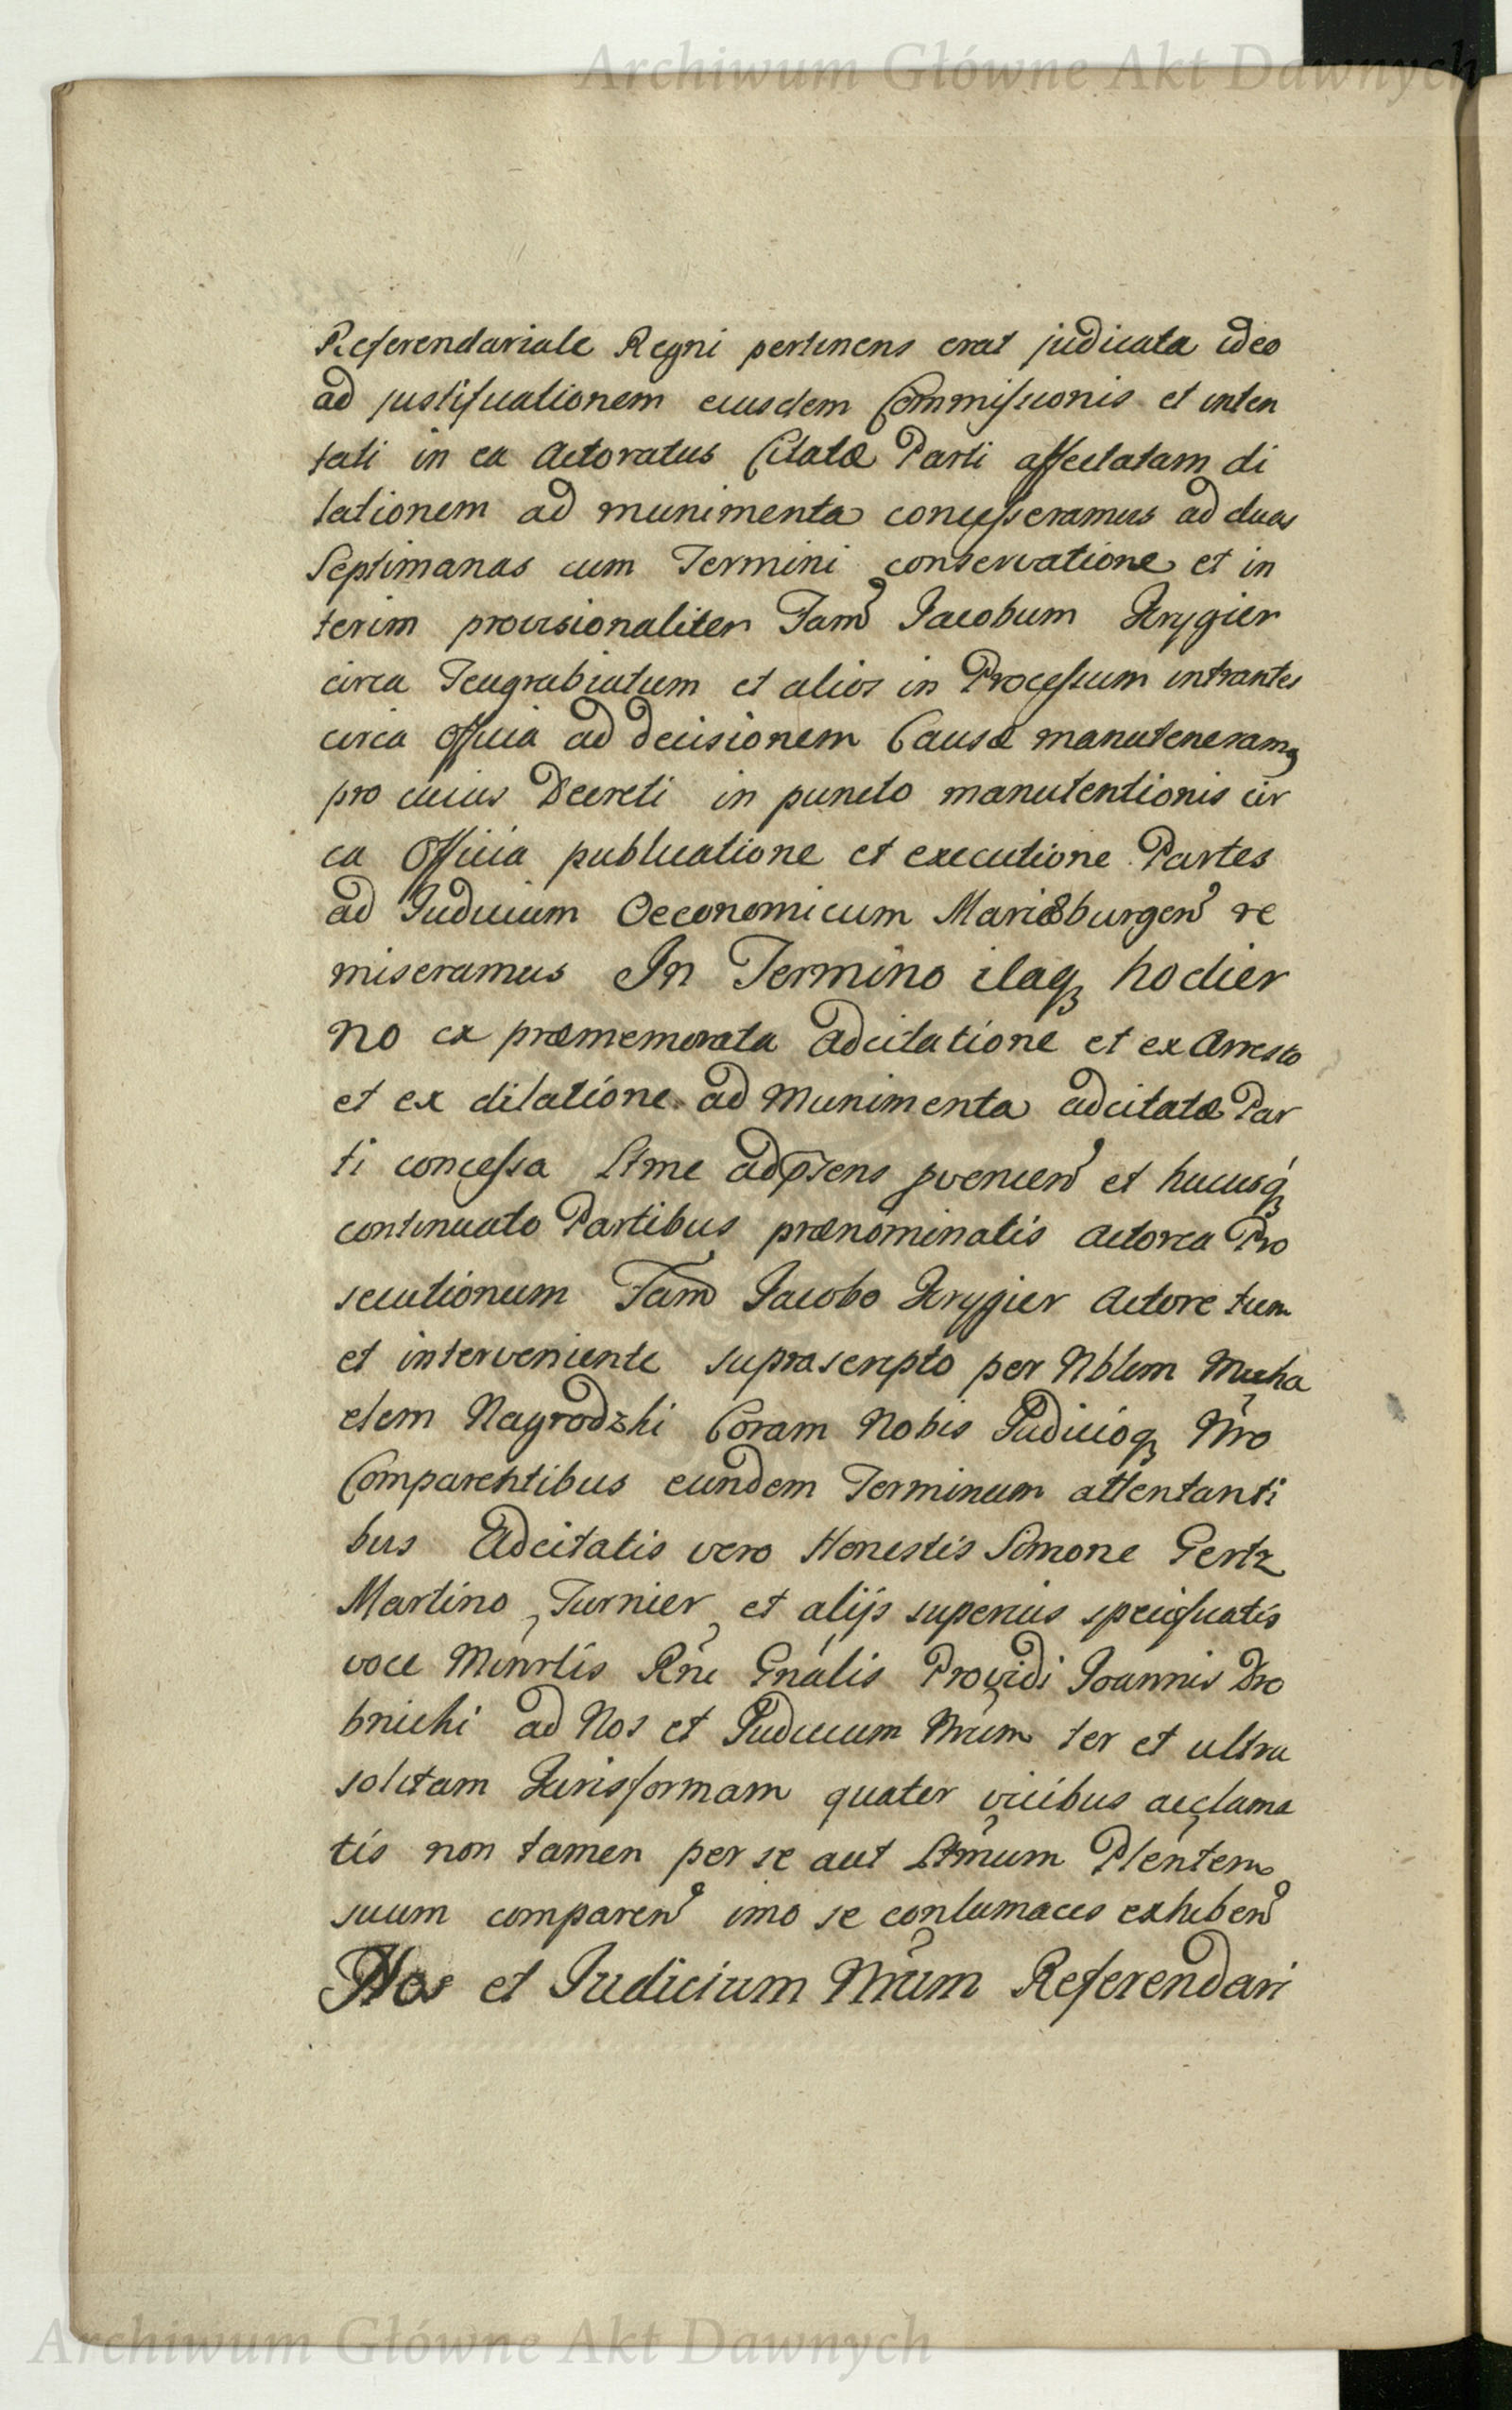 Archiwum Główne Akt Dawnych
Referendariale Regni pertinens erat judicata ideo
ad justificationem eiusdem Commissionis et inten
tati in ea Actoratus Citatæ Parti affectatam di
lationem ad munimenta concesseramus ad duas
Septimanas cum Termini conservatione et in
terim provisionaliter Fam Jacobum Krygier
circa Teugrabiatum et alios in Processum intrantes
circa Officia ad decisionem Causæ manuteneramq
pro cuius Decreti in puncto manutentionis cir
ca Officia publicatione et executione Partes
ad Judicium Oeconomicum Mariæburgen re
miseramus In Termino itaq hodier
no ex præmemorata adcitatione et ex Arresto
et ex dilatione ad Munimenta adcitatæ Par
ti concessa Ltme adpsens pvenien et hucusq
continuato Partibus prænominatis Actorea Pro
secutionum Fam Jacobo Krygier Actore tum
et interveniente suprascripto per Nblem Micha
elem Nagrodzki Coram Nobis Judicioq Nro
Comparentibus eundem Terminum attentanti
bus Adcitatis vero Honestis Simone Gertz
Martino Turnier et alijs superius specificatis
voce Minrlis Rni Gnalis Providi Joannis Dro
bnichi ad Nos et Judicium Nrum ter et ultra
solitam Juris formam quater vicibus acclama
tis non tamen per se aut Ltmum Plentem
suum comparen imo se contumaces exhiben
Nos et Judicium Nrum Referendari
Archiwum Główne Akt Dawnych